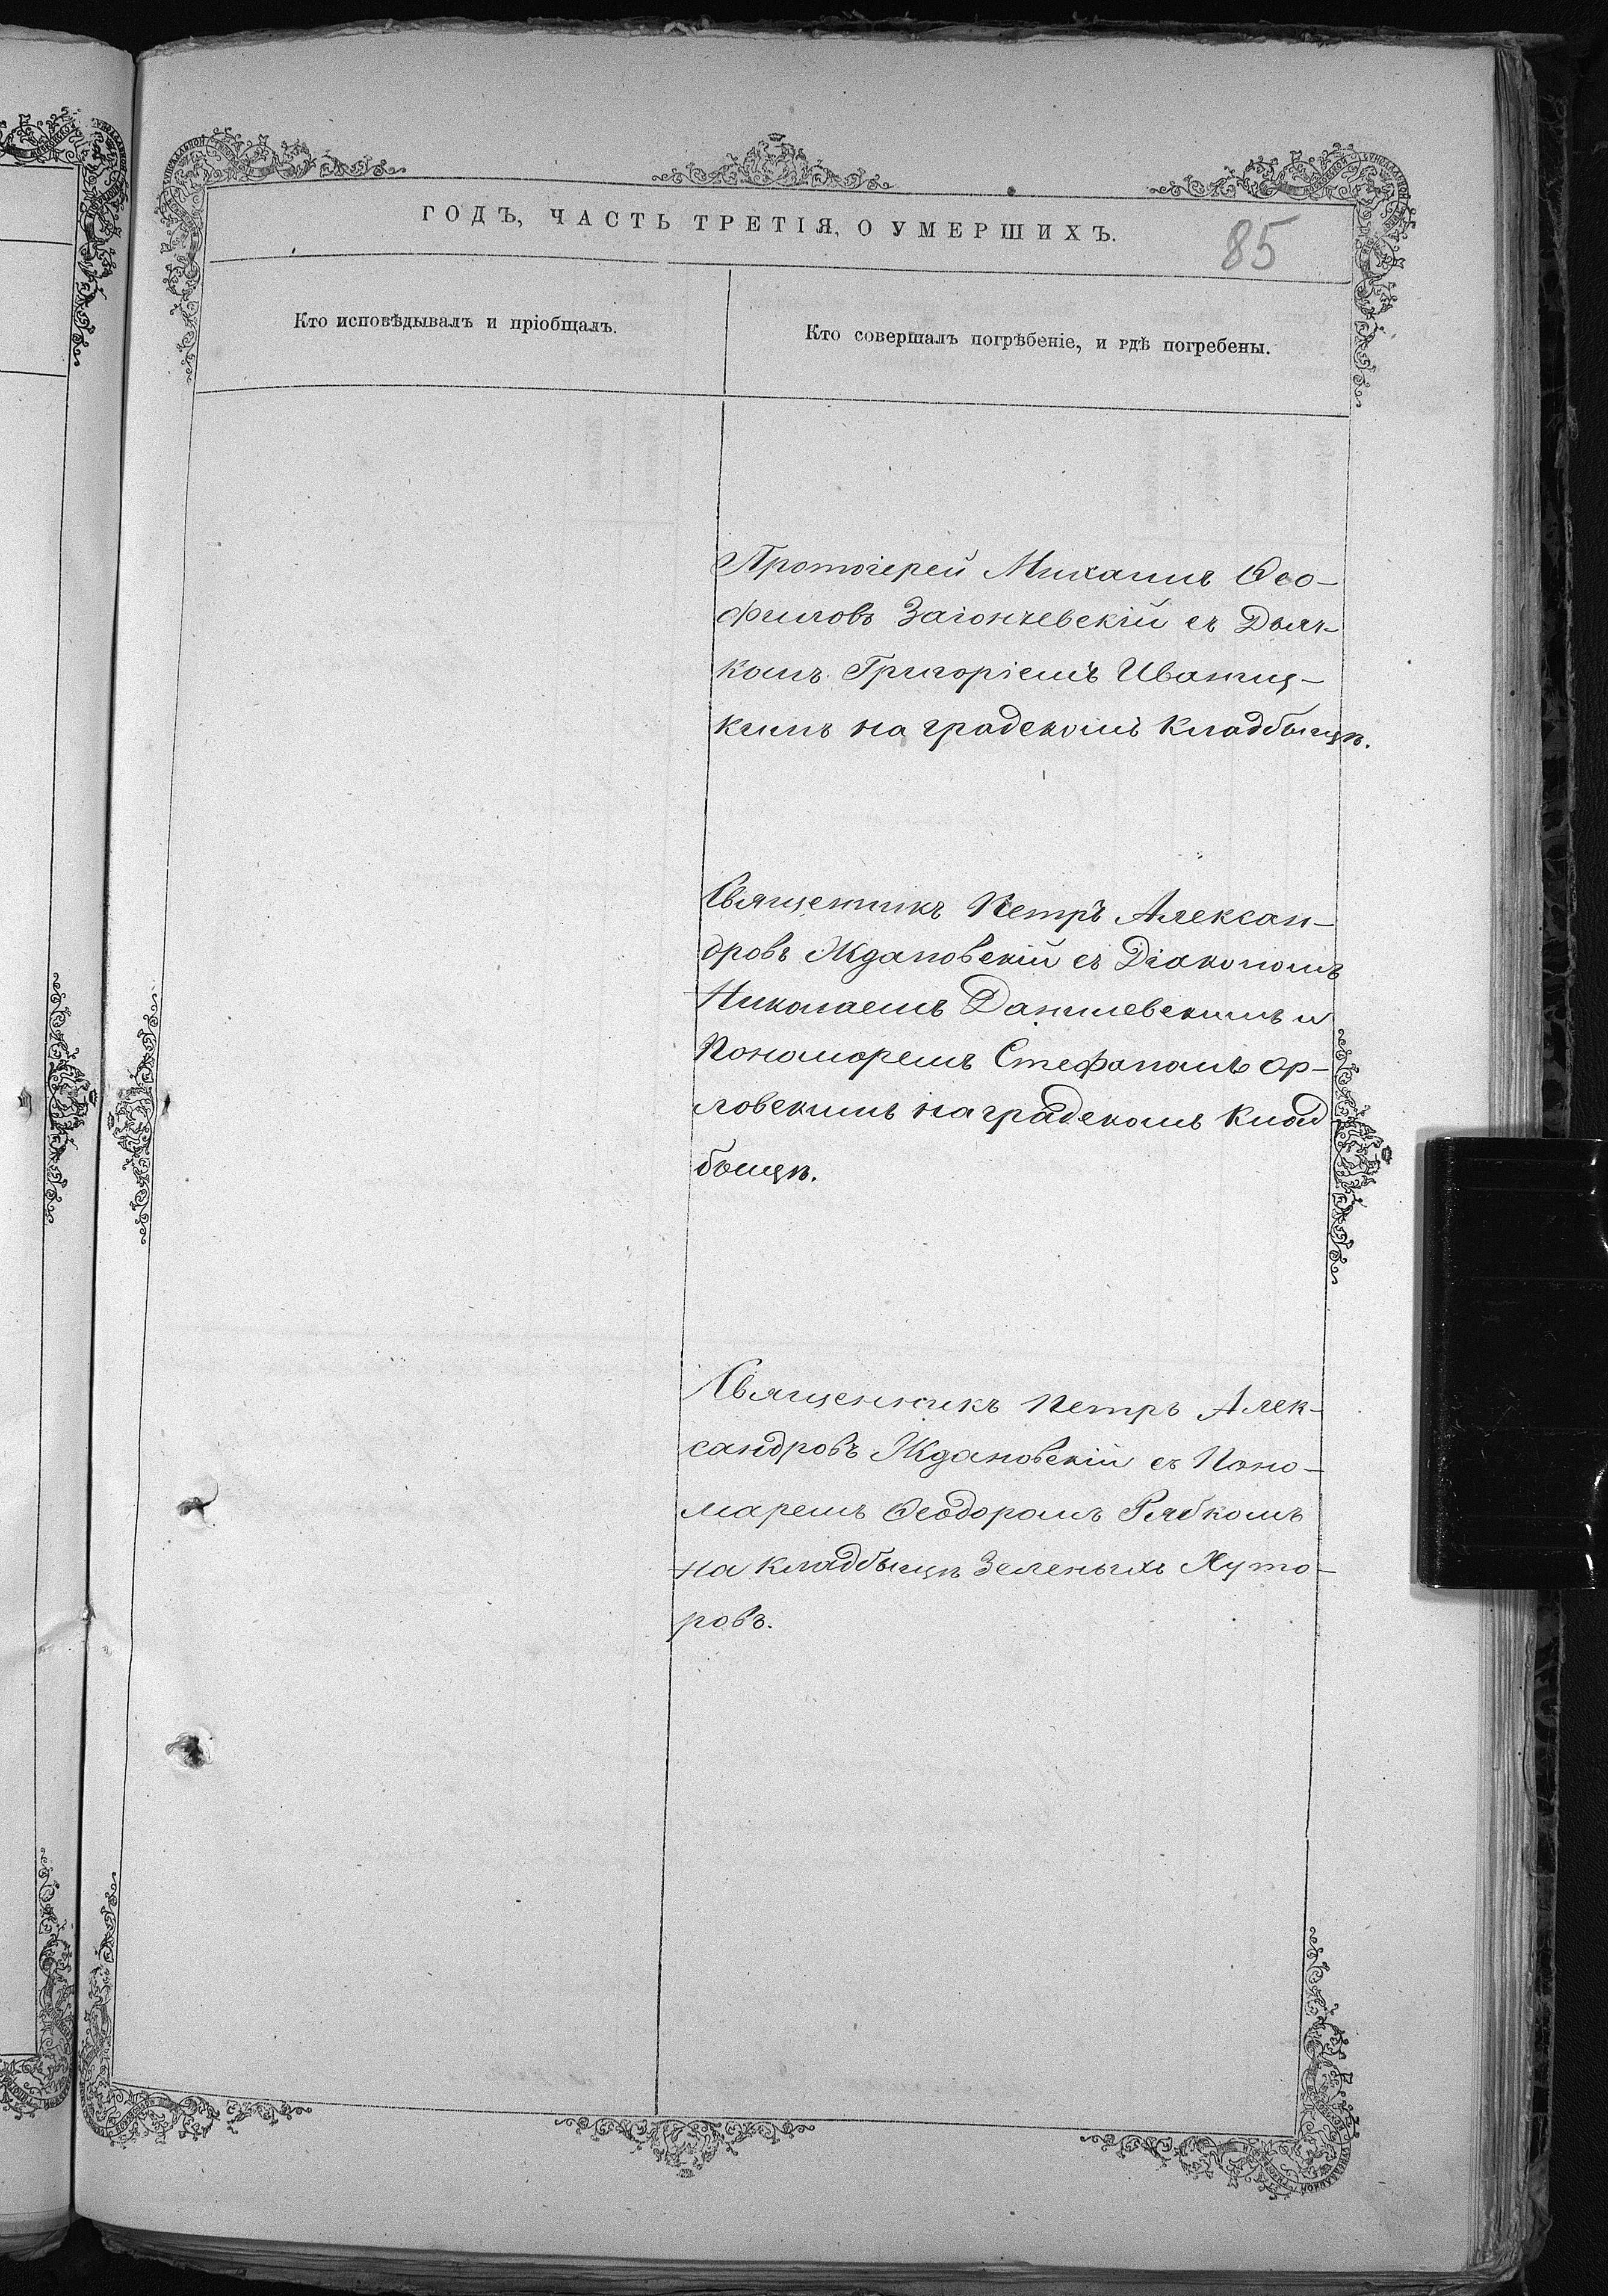 ГОДЪ, ЧАСТЬ ТРЕТІЯ, О УМЕРШИХЪ.
85
Кто исповѣдывалъ и пріобщалъ.
Кто совершалъ погрѣбеніе, и гдѣ погребены.
Протоіерей Михаилъ Ѳео-
филовъ Загончевскій съ Дьяч-
комъ Григоріемъ Иваниц-
кимъ на градскомъ кладбыщѣ.
Священникъ Петръ Алексан-
дровъ Ждановскій съ Діакономъ
Николаемъ Данилевскимъ и
Пономоремъ Стефаномъ Ор-
ловскимъ на градскомъ клад
быщѣ.
Священникъ Петръ Алек-
сандровъ Ждановскій съ Поно-
маремъ Ѳеодоромъ Рябкомъ
на кладбыщѣ Зеленыхъ Хуто-
ровъ.